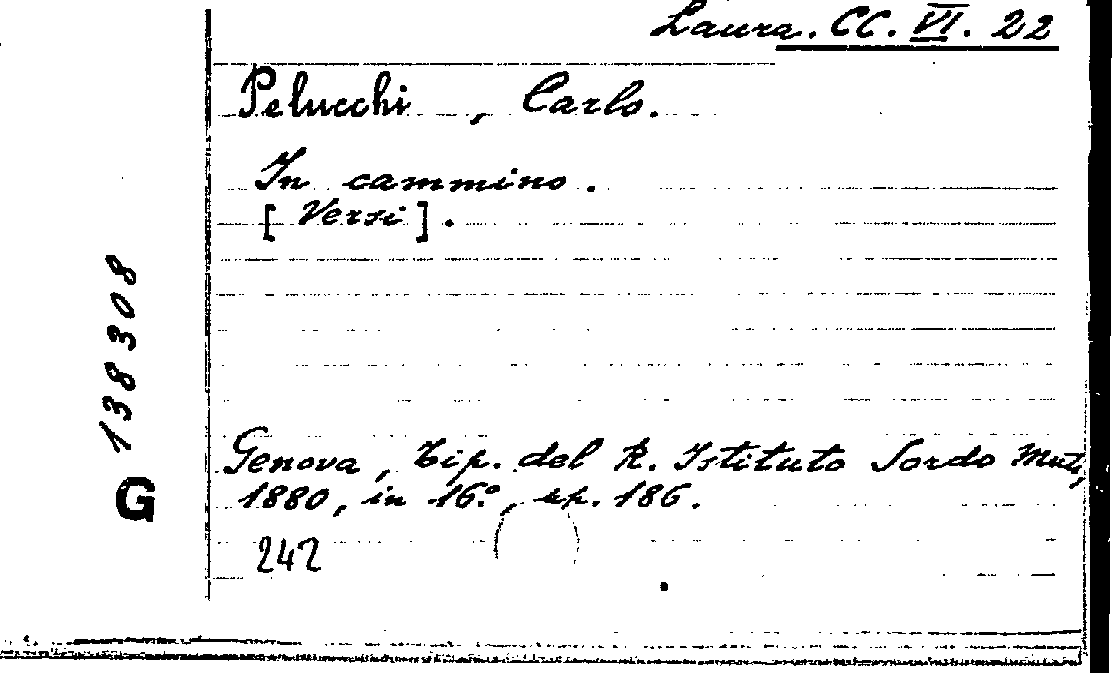 Laura. CC. VI. 22
Pelucchi, Carlo.
In cammino.
[Versi].
Genova, Tip. del R. Istituto Sordo Muti,
1880, in 16.° pp. 186.
242
G 138308